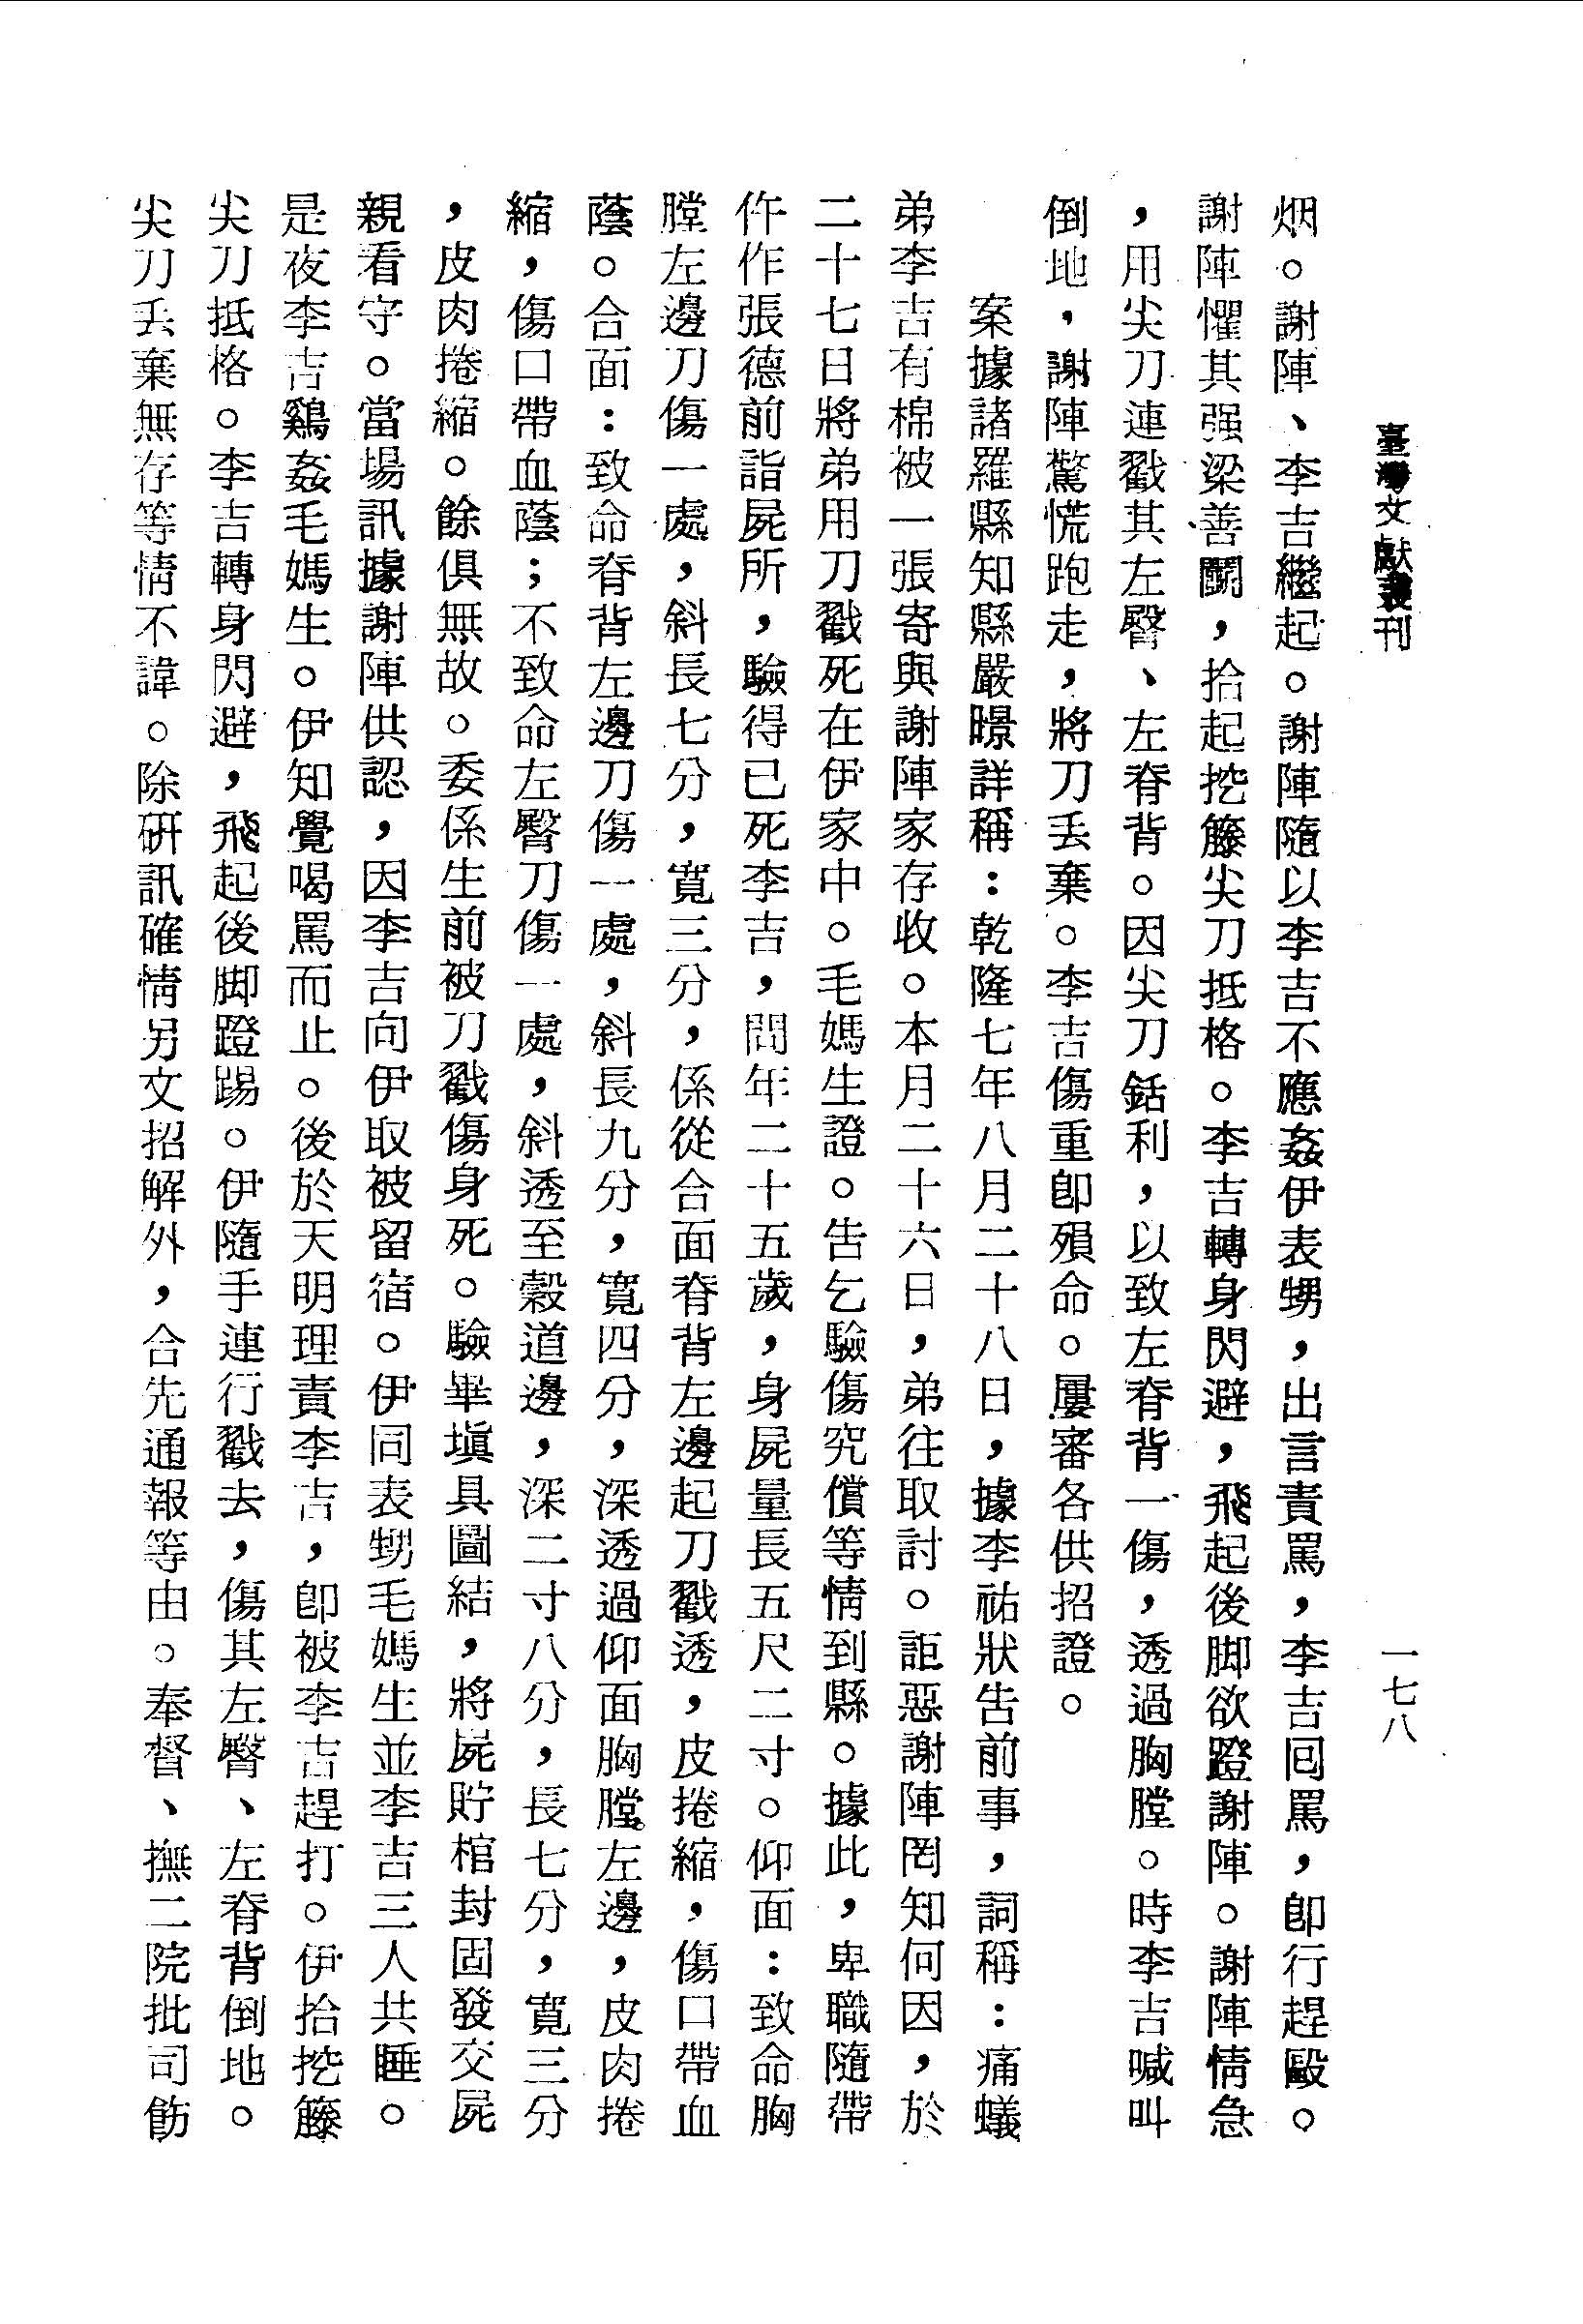 臺灣文獻叢刊
一七八
烟。謝陣、李吉繼起。謝陣隨以李吉不應姦伊表甥，出言責罵，李吉囘罵，卽行趕毆。
謝陣懼其强梁善鬭，拾起挖籐尖刀抵格。李吉轉身閃避，飛起後脚欲蹬謝陣。謝陣情急
，用尖刀連戳其左臀、左脊背。因尖刀銛利，以致左脊背一傷，透過胸膛。時李吉喊叫
倒地，謝陣驚慌跑走，將刀丢棄。李吉傷重卽殞命。屢審各供招證。
案據諸羅縣知縣嚴暻詳稱：乾隆七年八月二十八日，據李祐狀吿前事，詞稱：痛蟻
弟李吉有棉被一張寄與謝陣家存收。本月二十六日，弟往取討。詎惡謝陣罔知何因，於
二十七日將弟用刀戳死在伊家中。毛媽生證。吿乞驗傷究償等情到縣。據此，卑職隨帶
仵作張德前詣屍所，驗得已死李吉，問年二十五歲，身屍量長五尺二寸。仰面：致命胸
膛左邊刀傷一處，斜長七分，寬三分，係從合面脊背左邊起刀戳透，皮捲縮，傷口帶血
蔭。合面：致命脊背左邊刀傷一處，斜長九分，寬四分，深透過仰面胸膛。左邊，皮肉捲
縮，傷口帶血蔭；不致命左臀刀傷一處，斜透至穀道邊，深二寸八分，長七分，寬三分
，皮肉捲縮。餘俱無故。委係生前被刀戳傷身死。驗畢塡具圖結，將屍貯棺封固發交屍
親看守。當場訊據謝陣供認，因李吉向伊取被留宿。伊同表甥毛媽生並李吉三人共睡。
是夜李吉鷄姦毛媽生。伊知覺喝罵而止。後於天明理責李吉，卽被李吉趕打。伊拾挖籐
尖刀抵格。李吉轉身閃避，飛起後脚蹬踢。伊隨手連行戳去，傷其左臀、左脊背倒地。
尖刀丢棄無存等情不諱。除硏訊確情另文招解外，合先通報等由。奉督、撫二院批司飭